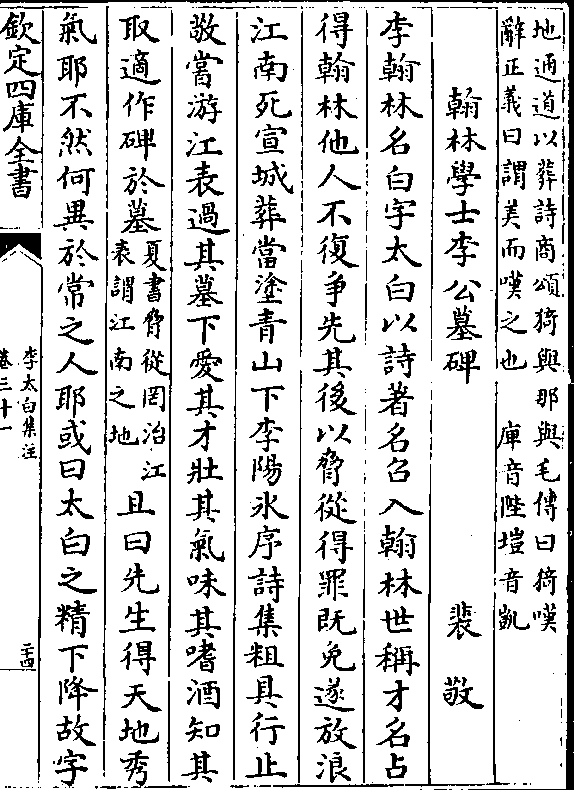 地通道以葬詩商頌猗與那與毛傳曰猗嘆
辭正義曰謂美而嘆之也　庫音陛塏音凱
翰林學士李公墓碑　裴敬
李翰林名白字太白以詩著名召入翰林世稱才名占
得翰林他人不復爭先其後以脅從得罪既免遂放浪
江南死宣城葬當塗青山下李陽冰序詩集粗具行止
敬嘗游江表過其墓下愛其才壯其氣味其嗜酒知其
取適作碑於墓夏書脅從罔治江表謂江南之地且曰先生得天地秀
氣耶不然何異於常之人耶或曰太白之精下降故字
欽定四庫全書
李太白集注
卷三十一
二十四